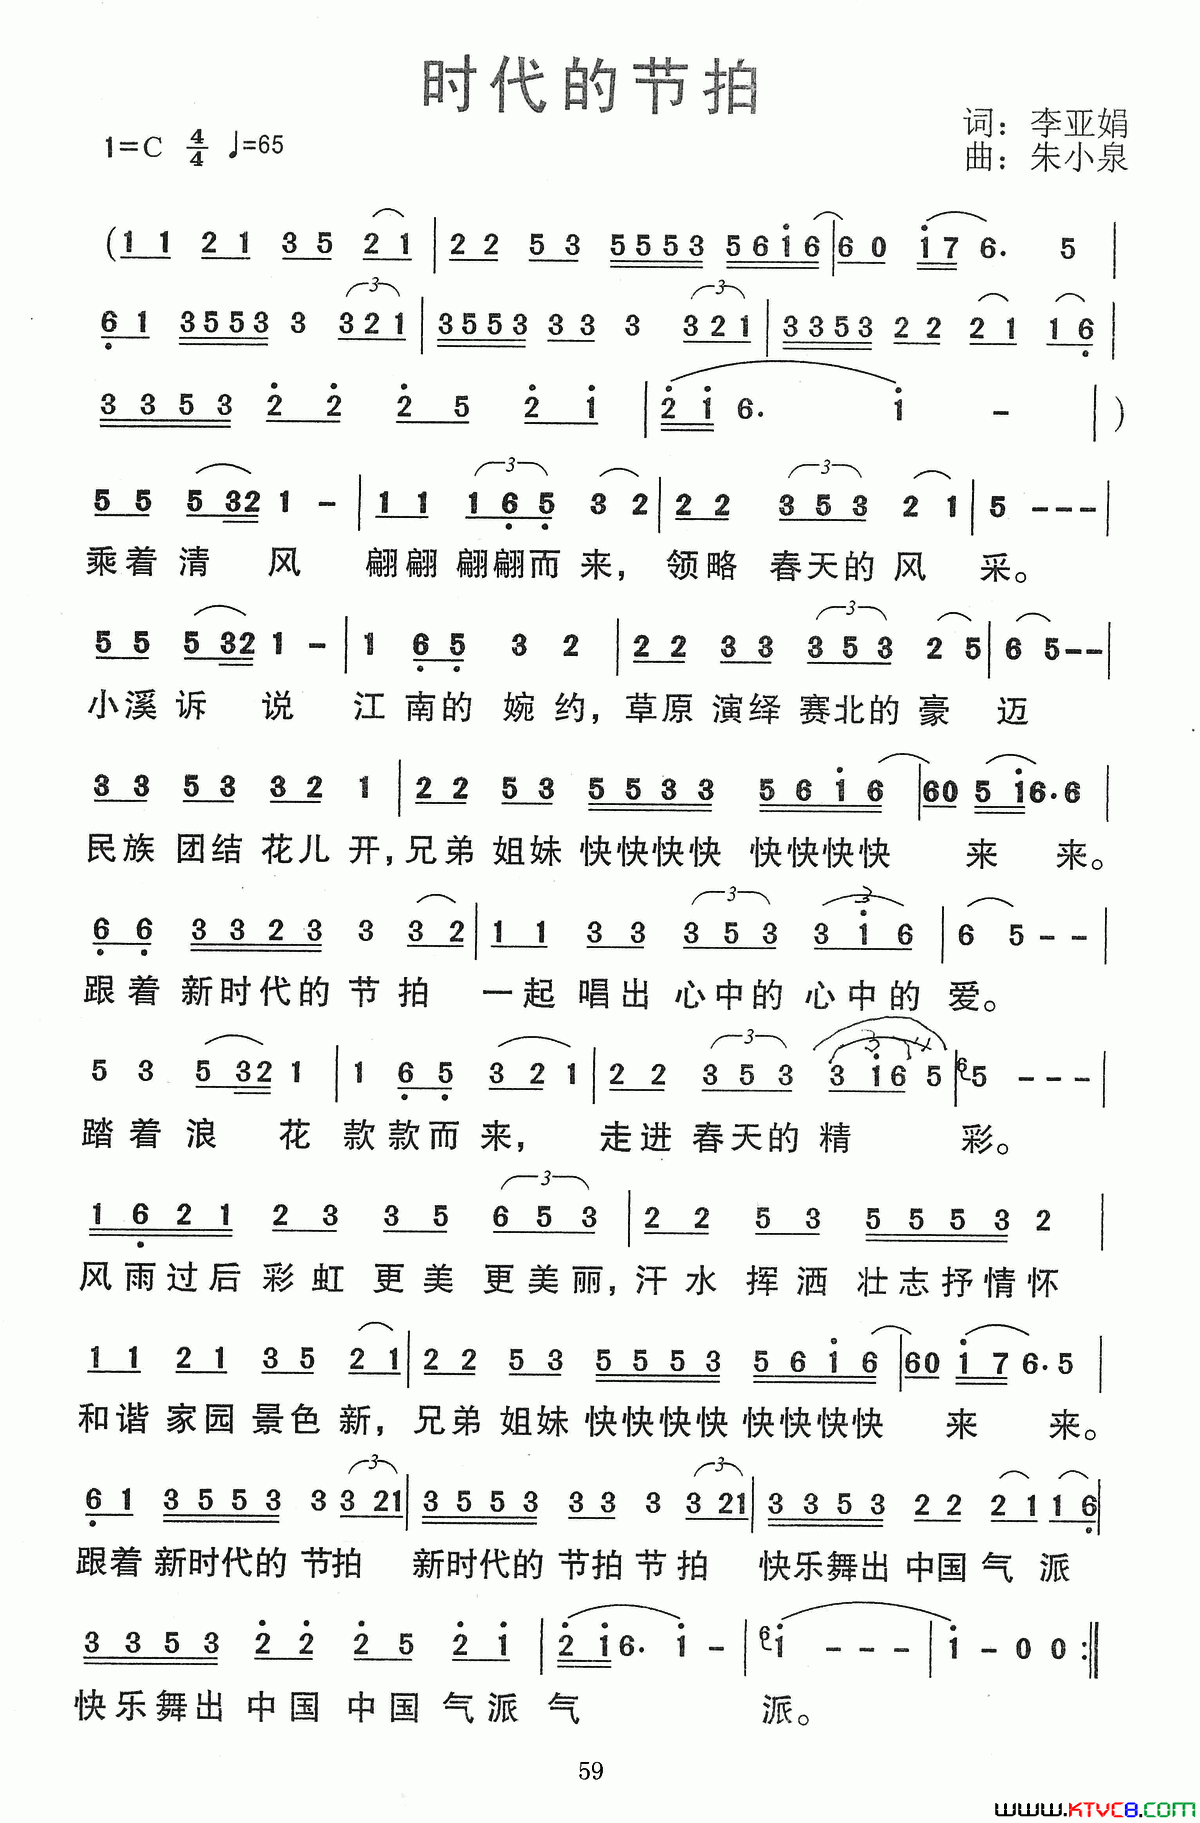 时代的节拍
词：李亚娟
1=C 4/4 ♩=65
曲：朱小泉
(1 1 2 1 3 5 2 1 | 2 2 5 3 5 5 5 3 5 6 i 6 | 6 0 i 7 6. 5 |
6 1 3 5 5 3 3 3 2 1 | 3 5 5 3 3 3 3 3 2 1 | 3 3 5 3 2 2 2 1 1 6 |
3 3 5 3 2 2 2 5 2 i | 2 i 6. i - | )
5 5 5 3 2 1 - | 1 1 1 6 5 3 2 | 2 2 3 5 3 2 1 | 5 - - - |
乘着 清 风 翩翩 翩翩而 来， 领略 春天的 风 采。
5 5 5 3 2 1 - | 1 6 5 3 2 | 2 2 3 3 3 5 3 2 5 | 6 5 - - |
小溪 诉 说 江 南的 婉 约， 草原 演绎 赛北的 豪 迈
3 3 5 3 3 2 1 | 2 2 5 3 5 5 3 3 5 6 i 6 | 6 0 5 i 6. 6 |
民族 团结 花儿 开，兄弟 姐妹 快快快快 快快快快 来 来。
6 6 3 3 2 3 3 3 2 | 1 1 3 3 3 5 3 3 i 6 | 6 5 - - |
跟着 新时代的 节 拍 一起 唱出 心中的 心中的 爱。
5 3 5 3 2 1 | 1 6 5 3 2 1 | 2 2 3 5 3 3 i 6 5 | 6 5 - - - |
踏着 浪 花 款款而 来， 走进 春天的 精 彩。
1 6 2 1 2 3 3 5 6 5 3 | 2 2 5 3 5 5 5 3 2 |
风雨过后 彩虹 更美 更美丽，汗水 挥洒 壮志抒情怀
1 1 2 1 3 5 2 1 | 2 2 5 3 5 5 5 3 5 6 i 6 | 6 0 i 7 6. 5 |
和谐 家园 景色 新， 兄弟 姐妹 快快快快 快快快快 来 来。
6 1 3 5 5 3 3 3 2 1 | 3 5 5 3 3 3 3 3 2 1 | 3 3 5 3 2 2 2 1 1 6 |
跟着 新时代的 节拍 新时代的 节拍节拍 快乐舞出 中国 气 派
3 3 5 3 2 2 2 5 2 i | 2 i 6. i - | 6 i - - - | i - 0 0 :||
快乐舞出 中国 中国 气派 气 派。
59
www.KTVC8.com